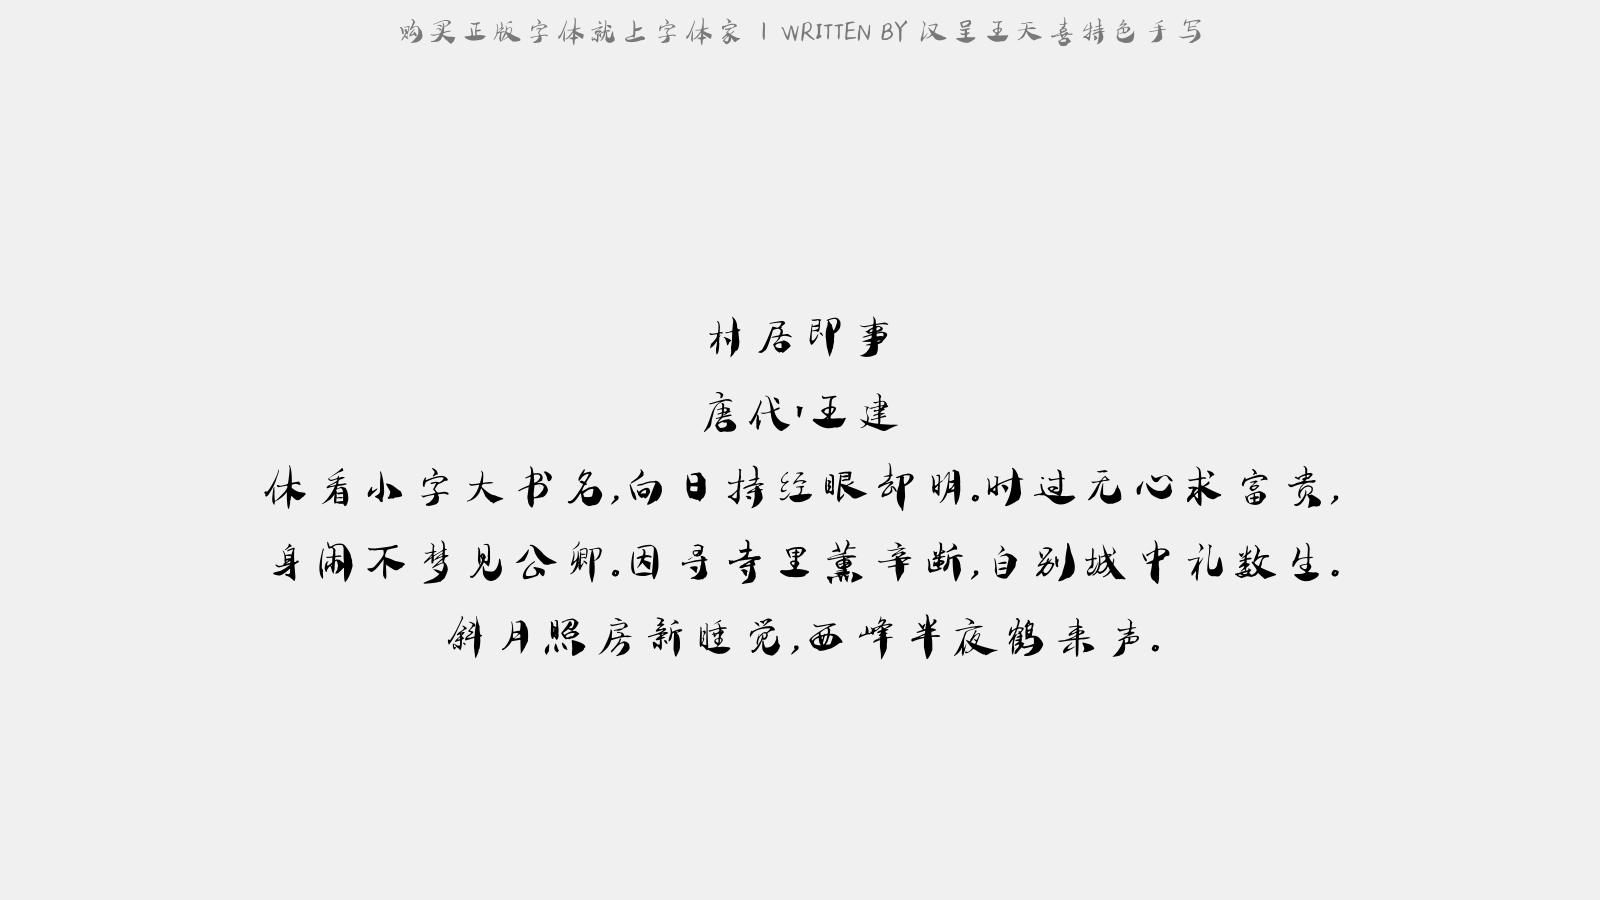 购买正版字体就上字体家 | WRITTEN BY 汉呈王天喜特色手写
村居即事
唐代·王建
休看小字大书名,向日持经眼却明。时过无心求富贵,
身闲不梦见公卿。因寻寺里薰辛断,自别城中礼数生。
斜月照房新睡觉,西峰半夜鹤来声。